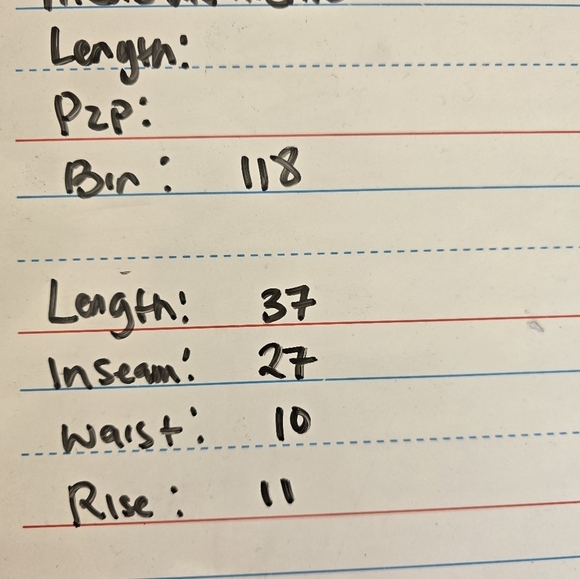 Length:
P2P:
Bin: 118
Length: 37
Inseam: 27
Waist: 10
Rise: 11